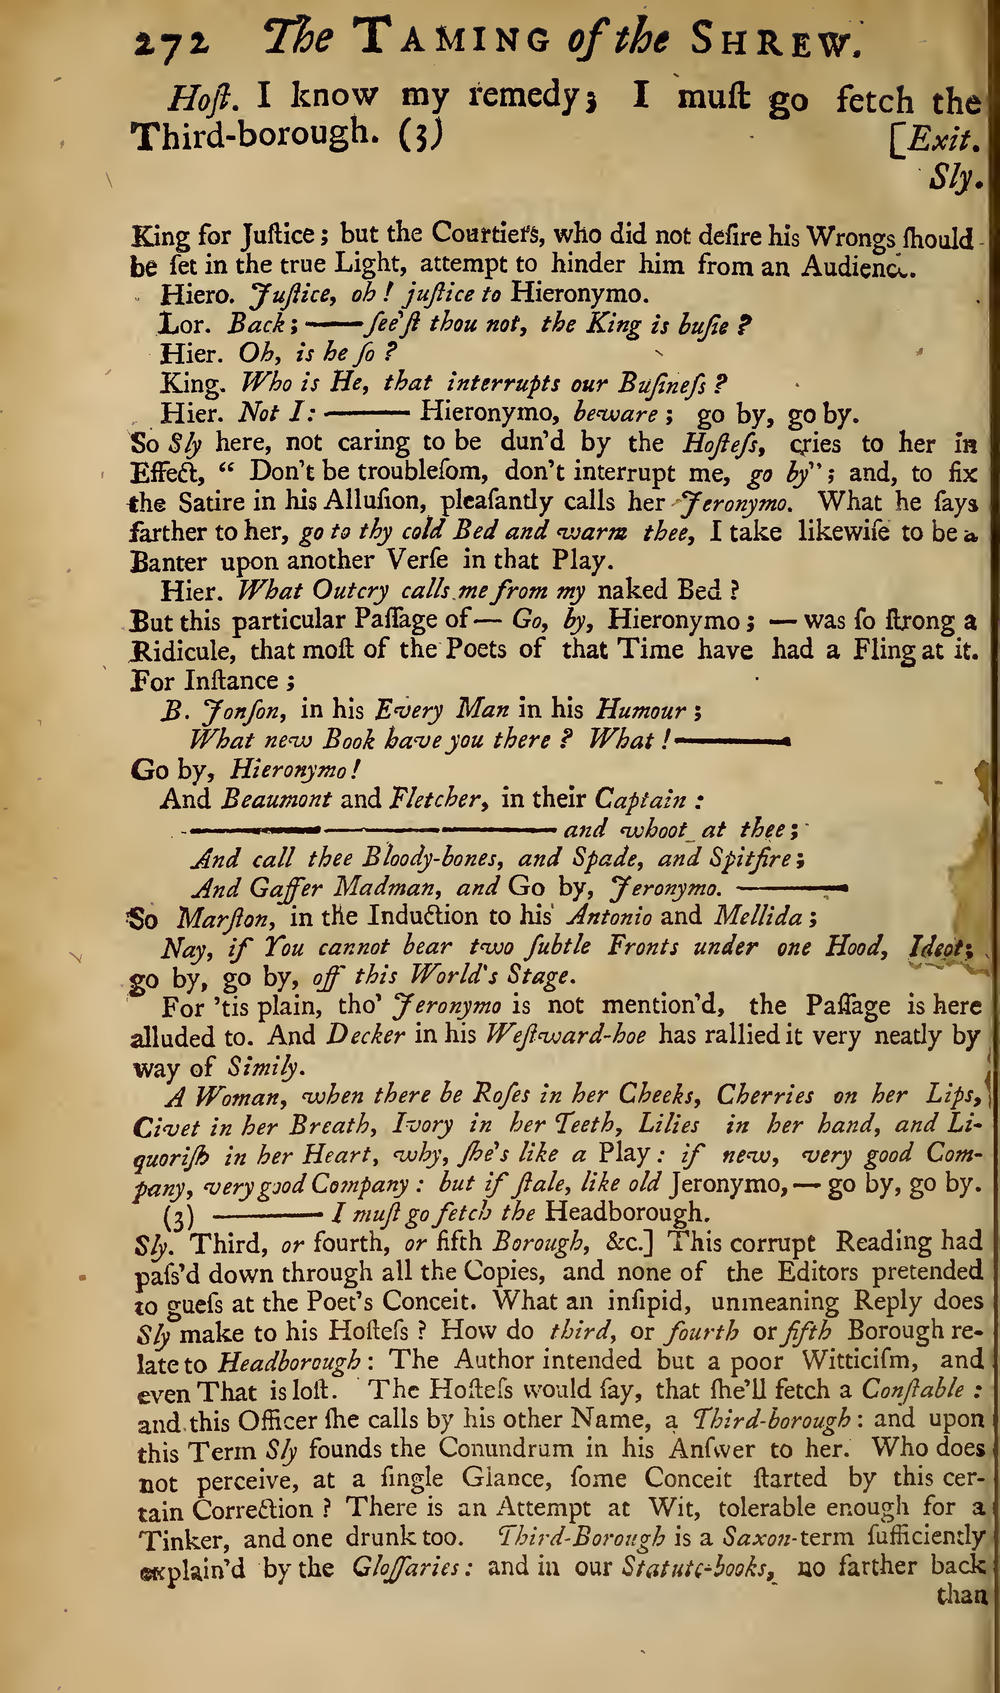 272 The TAMING of the SHREW.
Hoſt. I know my remedy; I muſt go fetch the
Third-borough. (3) [Exit.
Sly.
King for Juſtice; but the Courtiers, who did not deſire his Wrongs ſhould
be ſet in the true Light, attempt to hinder him from an Audience.
Hiero. Juſtice, oh! juſtice to Hieronymo.
Lor. Back; —— ſee'ſt thou not, the King is buſie?
Hier. Oh, is he ſo?
King. Who is He, that interrupts our Buſineſs?
Hier. Not I: —— Hieronymo, beware; go by, go by.
So Sly here, not caring to be dun'd by the Hoſteſs, cries to her in
Effect, “ Don't be troubleſom, don't interrupt me, go by”; and, to fix
the Satire in his Alluſion, pleaſantly calls her Jeronymo. What he ſays
farther to her, go to thy cold Bed and warm thee, I take likewiſe to be a
Banter upon another Verſe in that Play.
Hier. What Outcry calls me from my naked Bed?
But this particular Paſſage of — Go, by, Hieronymo; — was ſo ſtrong a
Ridicule, that moſt of the Poets of that Time have had a Fling at it.
For Inſtance;
B. Jonſon, in his Every Man in his Humour;
What new Book have you there? What! ——
Go by, Hieronymo!
And Beaumont and Fletcher, in their Captain:
—— —— and whoot at thee;
And call thee Bloody-bones, and Spade, and Spitfire;
And Gaffer Madman, and Go by, Jeronymo. ——
So Marſton, in the Induction to his Antonio and Mellida;
Nay, if You cannot bear two ſubtle Fronts under one Hood, Ideot;
go by, go by, off this World's Stage.
For 'tis plain, tho' Jeronymo is not mention'd, the Paſſage is here
alluded to. And Decker in his Weſtward-hoe has rallied it very neatly by
way of Simily.
A Woman, when there be Roſes in her Cheeks, Cherries on her Lips,
Civet in her Breath, Ivory in her Teeth, Lilies in her hand, and Li-
quoriſh in her Heart, why, ſhe's like a Play: if new, very good Com-
pany, very good Company: but if ſtale, like old Jeronymo, — go by, go by.
(3) —— I muſt go fetch the Headborough.
Sly. Third, or fourth, or fifth Borough, &c.] This corrupt Reading had
paſs'd down through all the Copies, and none of the Editors pretended
to gueſs at the Poet's Conceit. What an inſipid, unmeaning Reply does
Sly make to his Hoſteſs? How do third, or fourth or fifth Borough re-
late to Headborough: The Author intended but a poor Witticiſm, and
even That is loſt. The Hoſteſs would ſay, that ſhe'll fetch a Conſtable:
and this Officer ſhe calls by his other Name, a Third-borough: and upon
this Term Sly founds the Conundrum in his Anſwer to her. Who does
not perceive, at a ſingle Glance, ſome Conceit ſtarted by this cer-
tain Correction? There is an Attempt at Wit, tolerable enough for a
Tinker, and one drunk too. Third-Borough is a Saxon-term ſufficiently
explain'd by the Gloſſaries: and in our Statute-books, no farther back
than